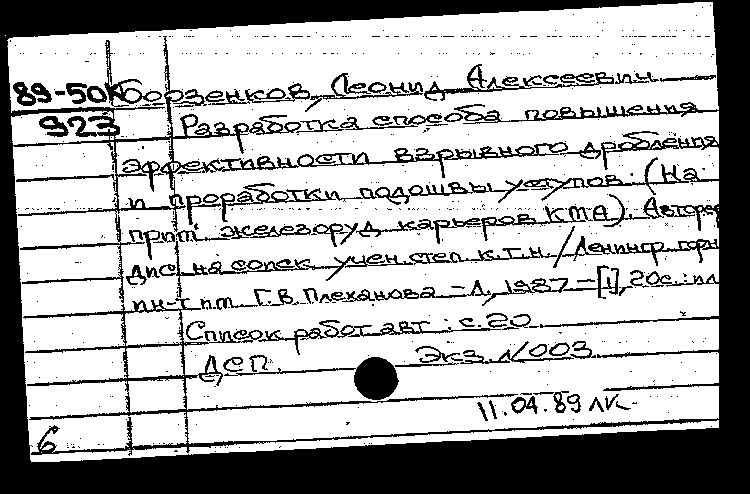 89-50к Борзенков, Леонид Алексеевич
923 Разработка способа повышения
эффективности взрывного дробления
и проработки подошвы уступов. (На
прим. железоруд. карьеров КМА). Автореф
дис на соиск учен. степ к.т.н. / Ленингр. горн
ин-т им. Г.В. Плеханова - Л., 1987 - [1], 20с.: ил
Список работ авт: с. 20
ДСП. Экз. N/003
11.04.89 ЛК
6